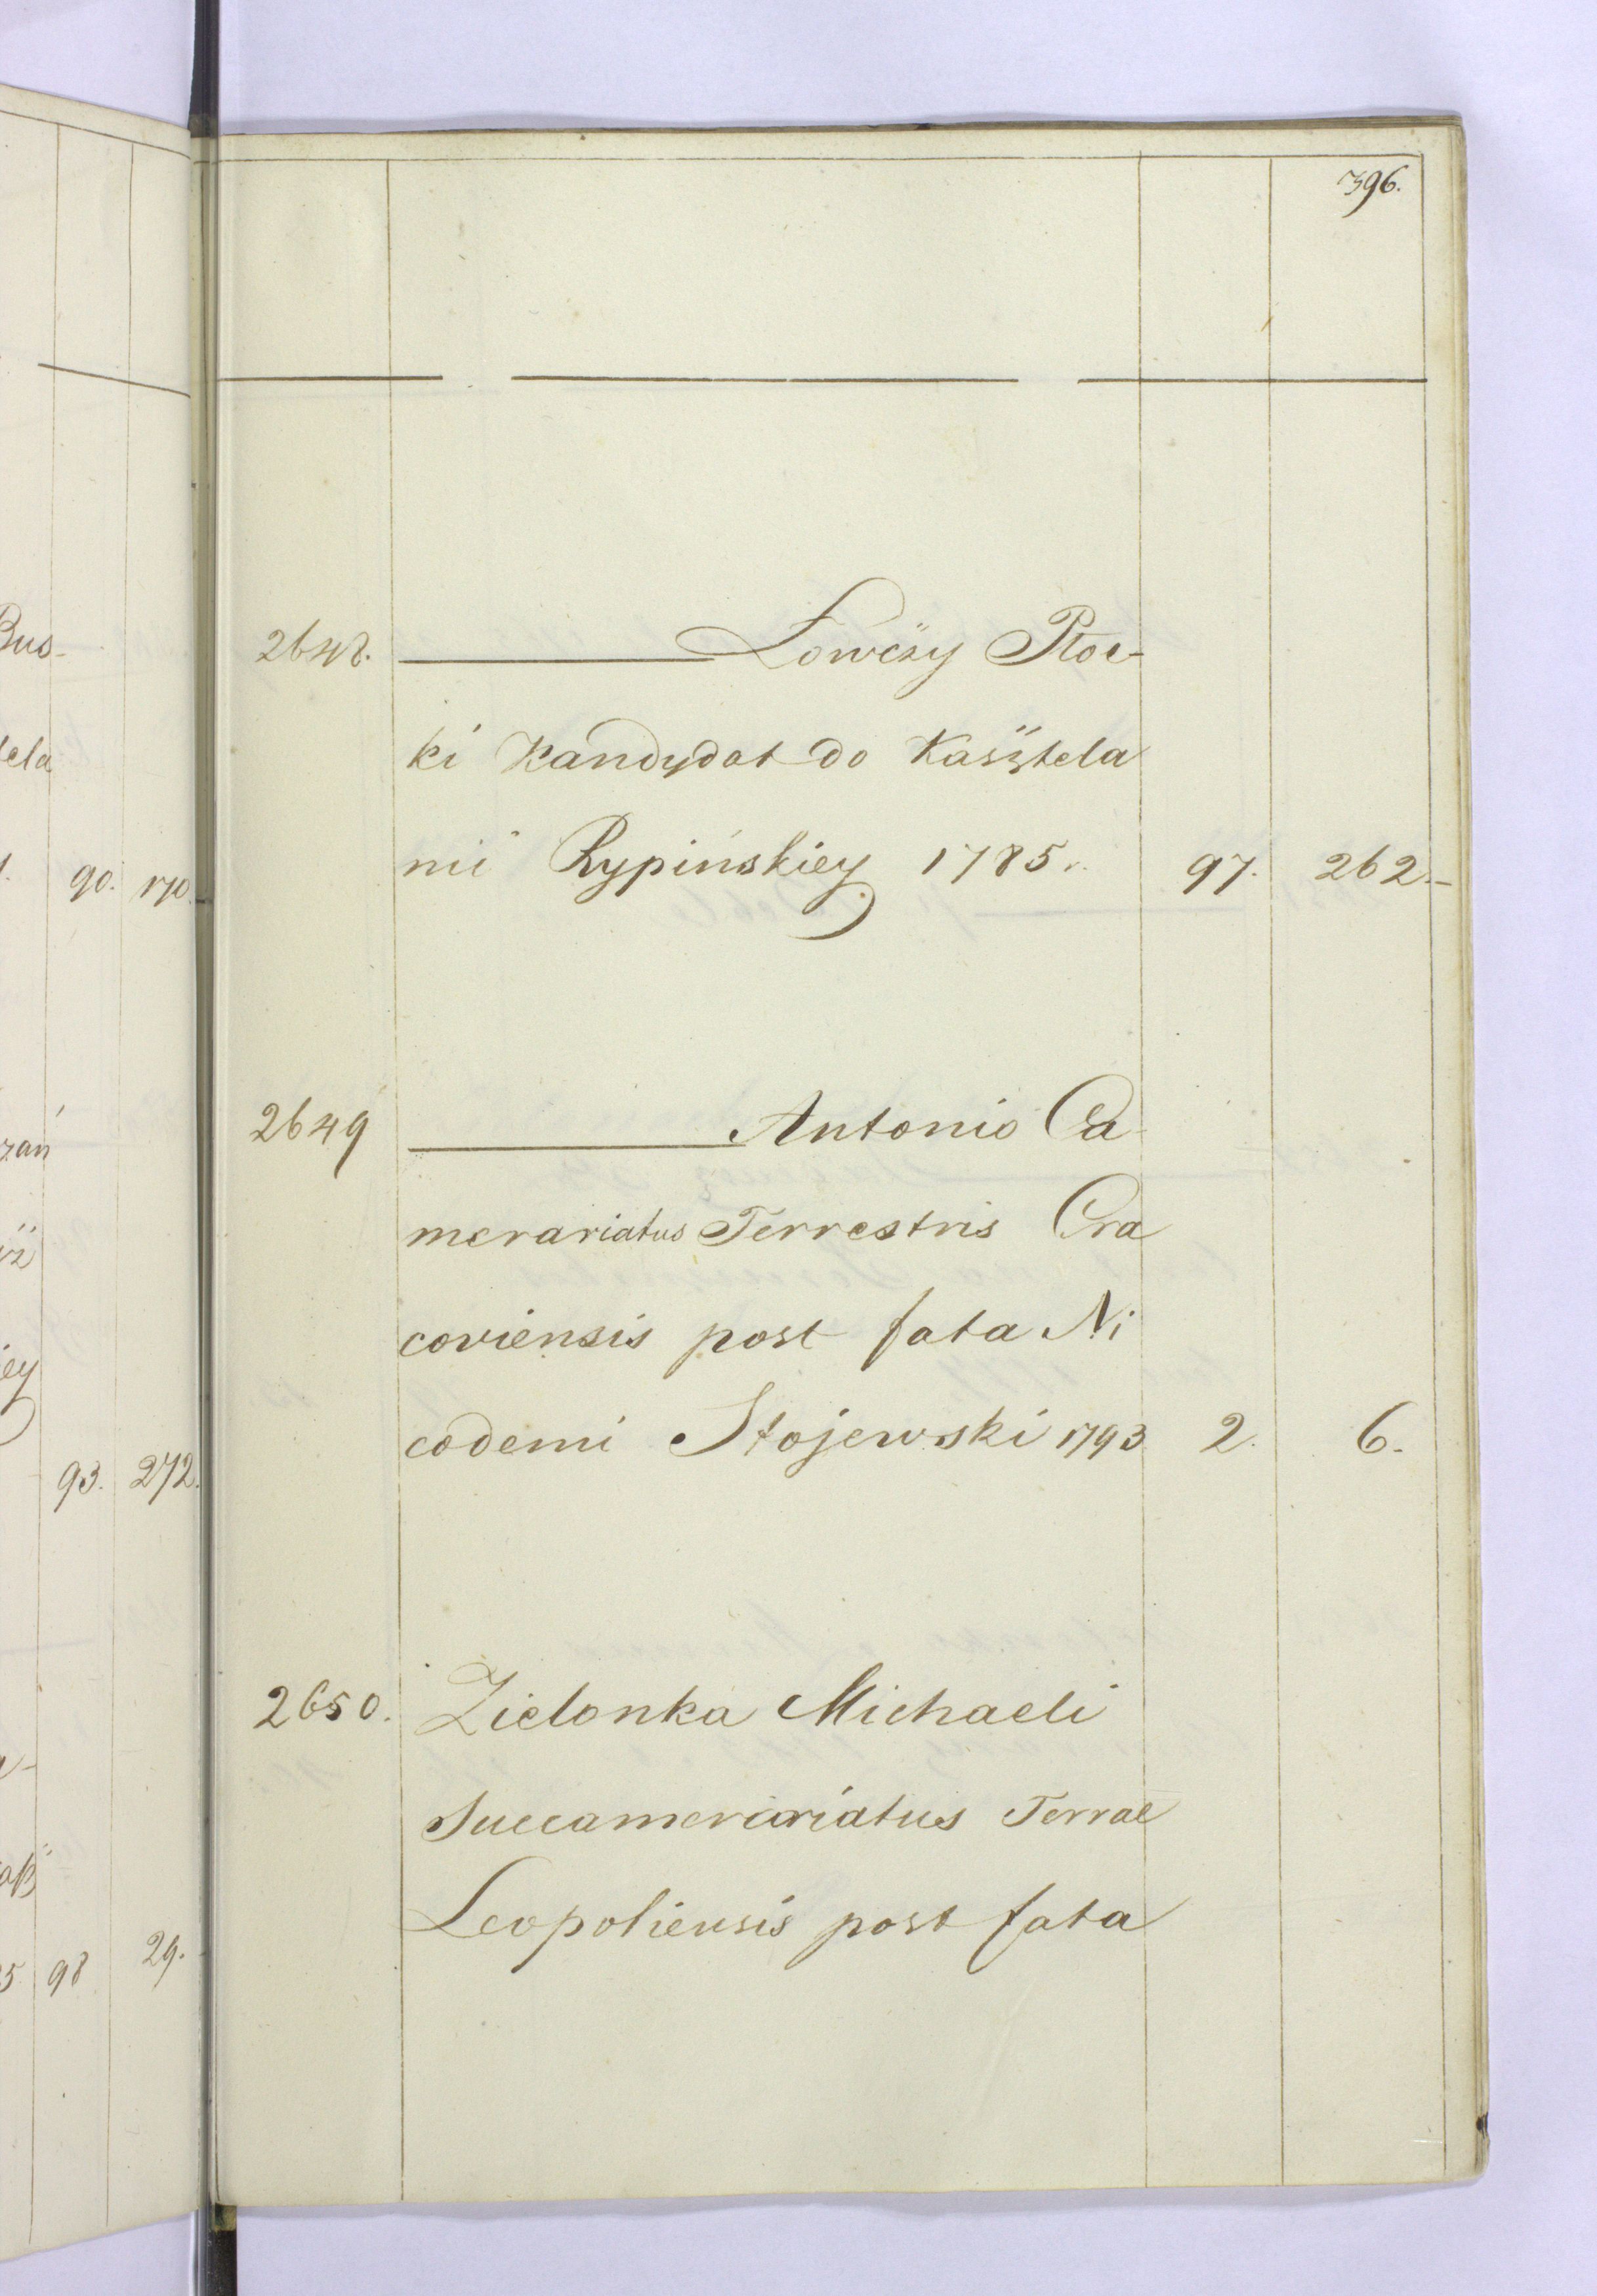 396.
2648. Łowczy Płoc-
ki Kandydat do Kasztela
nii Rypińskiey 1785. 97. 262.-
2649 Antonio Ca
merariatus Terrestris Cra
coviensis post fata Ni
codemi Stojewski 1793 2. 6.
2650. Zielonka Michaeli
Succamerariatus Terrae
Leopoliensis post fata
90. 170.
zań
iey
93. 272.
98 29.